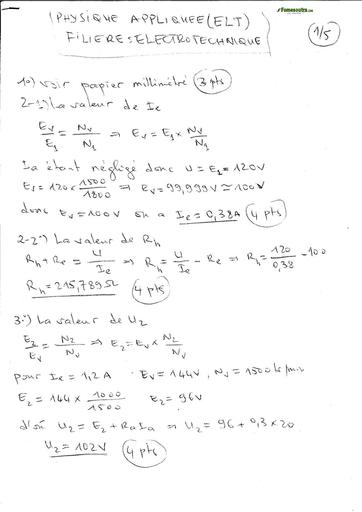 Fomesoutra.com
(PHYSIQUE APPLIQUEE (ELT)
FILIERE: ELECTROTECHNIQUE)
1/5
1°) voir papier millimétré (3 pts)
2-1°) La valeur de Ie
Ev/E1 = Nv/N1 => Ev = E1 x Nv/N1
Ia étant négligé donc U = E1 = 120V
Ev = 120 x 1500/1800 => Ev = 99,999V ≃ 100V
donc Ev = 100V on a Ie = 0,38A (4 pts)
2-2°) La valeur de Rh
Rh + Re = U/Ie => Rh = U/Ie - Re => Rh = 120/0,38 - 100
Rh = 215,789Ω (4 pts)
3°) La valeur de U2
E2/Ev = N2/Nv => E2 = Ev x N2/Nv
pour Ie = 1,2A Ev = 144V, Nv = 1500 tr/min
E2 = 144 x 1000/1500 E2 = 96V
d'où U2 = E2 + RaIa => U2 = 96 + 0,3 x 20
U2 = 102V (4 pts)